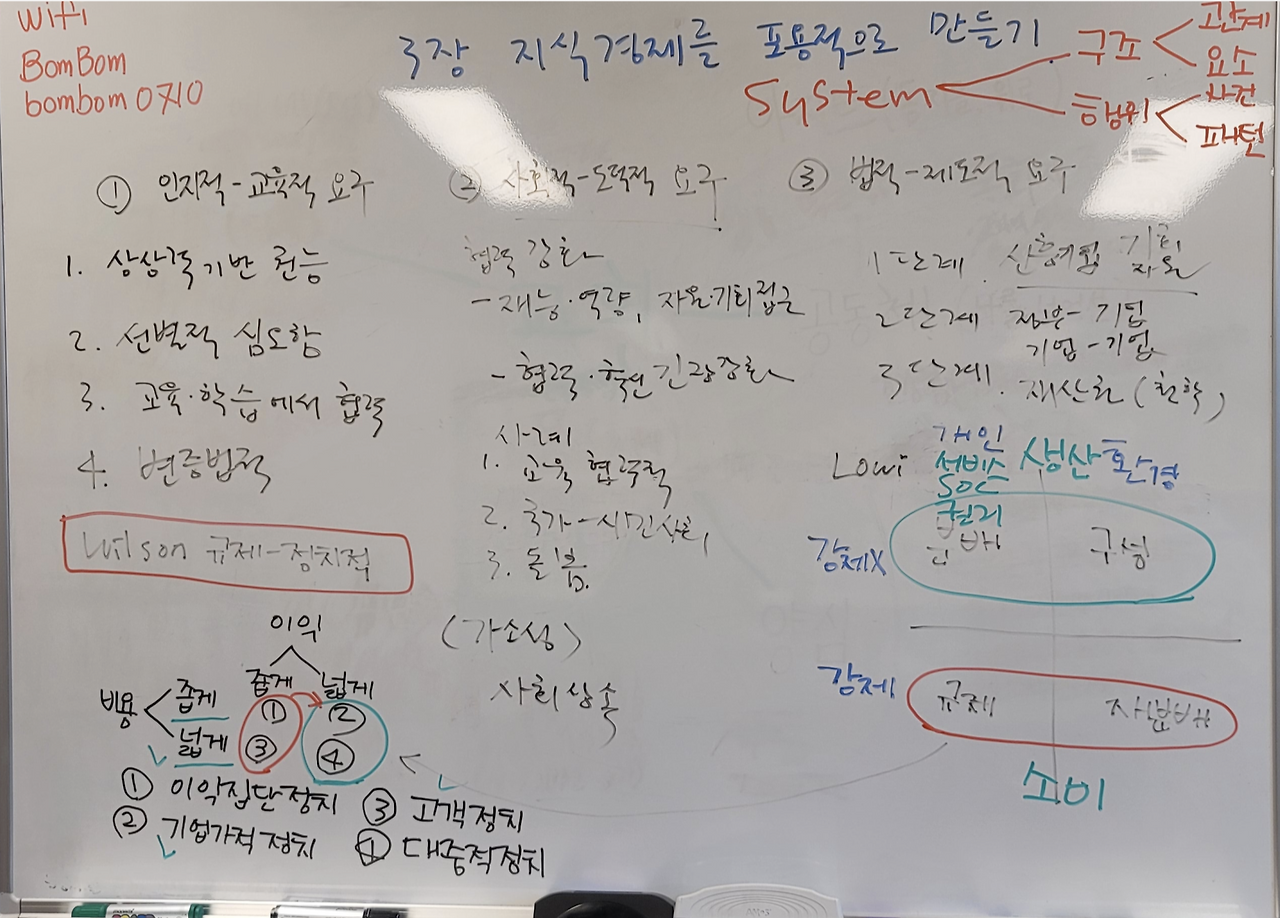 wifi
BomBom
bombom 0710
3장 지식경제를 포용적으로 만들기
System
구조
관계
요소
행위
사건
패턴
① 인지적-교육적 요구
1. 상상력 기반 권능
2. 선별적 심도함
3. 교육·학습에서 협력
4. 변증법적
Wilson 규제-정치적
이익
좁게 넓게
비용
좁게 ① ②
넓게 ③ ④
① 이익집단정치
② 기업가적 정치
③ 고객정치
④ 대중적정치
② 사회적-도덕적 요구
협력 강화
- 재능·역량, 자원·기회접근
- 협력·혁신 긴장강화
사례
1. 교육 협력적
2. 국가-시민사회
3. 돌봄
(가소성)
사회상속
③ 법적-제도적 요구
1단계. 산형기업 기회
자원
2단계 정부-기업
기업-기업
3단계. 재산권(철학)
Lowi
개인
서비스
SOC
권리
생산환경
강제X
분배
구성
강제
규제
재분배
소비